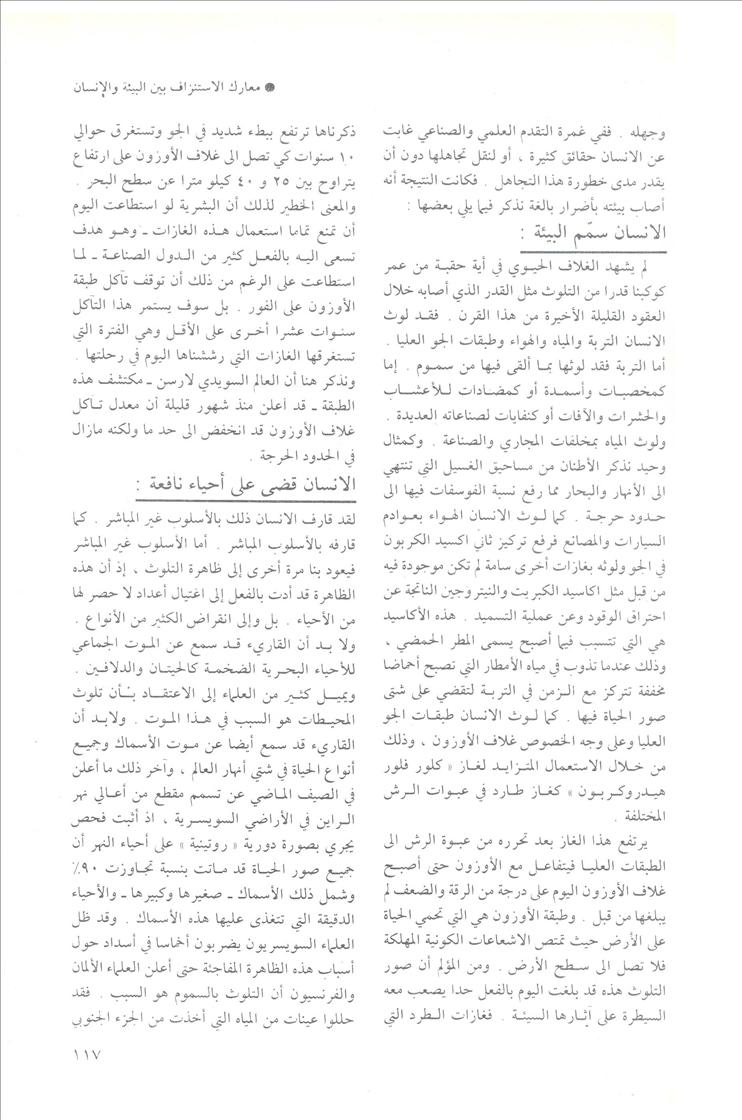 ● معارك الاستنزاف بين البيئة والإنسان
وجهله . ففي غمرة التقدم العلمي والصناعي غابت
عن الانسان حقائق كثيرة ، أو لنقل تجاهلها دون أن
يقدر مدى خطورة هذا التجاهل . فكانت النتيجة أنه
أصاب بيئته بأضرار بالغة نذكر فيما يلي بعضها :
الانسان سمّم البيئة :
لم يشهد الغلاف الحيوي في أية حقبة من عمر
كوكبنا قدرا من التلوث مثل القدر الذي أصابه خلال
العقود القليلة الأخيرة من هذا القرن . فقد لوث
الانسان التربة والمياه والهواء وطبقات الجو العليا .
أما التربة فقد لوثها بما ألقى فيها من سموم . إما
كمخصبات وأسمدة أو كمضادات للأعشاب
والحشرات والآفات أو كنفايات لصناعاته العديدة .
ولوث المياه بمخلفات المجاري والصناعة . وكمثال
وحيد نذكر الأطنان من مساحيق الغسيل التي تنتهي
الى الأنهار والبحار مما رفع نسبة الفوسفات فيها الى
حدود حرجة . كما لوث الانسان الهواء بعوادم
السيارات والمصانع فرفع تركيز ثاني اكسيد الكربون
في الجو ولوثه بغازات أخرى سامة لم تكن موجودة فيه
من قبل مثل اكاسيد الكبريت والنيتروجين الناتجة عن
احتراق الوقود وعن عملية التسميد . هذه الأكاسيد
هي التي تتسبب فيما أصبح يسمى المطر الحمضي ،
وذلك عندما تذوب في مياه الأمطار التي تصبح أحماضا
مخففة تتركز مع الزمن في التربة لتقضي على شتى
صور الحياة فيها . كما لوث الانسان طبقات الجو
العليا وعلى وجه الخصوص غلاف الأوزون ، وذلك
من خلال الاستعمال المتزايد لغاز « كلور فلور
هيدروكربون » كغاز طارد في عبوات الرش
المختلفة .
يرتفع هذا الغاز بعد تحرره من عبوة الرش الى
الطبقات العليا فيتفاعل مع الأوزون حتى أصبح
غلاف الأوزون اليوم على درجة من الرقة والضعف لم
يبلغها من قبل . وطبقة الأوزون هي التي تحمي الحياة
على الأرض حيث تمتص الاشعاعات الكونية المهلكة
فلا تصل الى سطح الأرض . ومن المؤلم أن صور
التلوث هذه قد بلغت اليوم بالفعل حدا يصعب معه
السيطرة على آثارها السيئة . فغازات الطرد التي
ذكرناها ترتفع ببطء شديد في الجو وتستغرق حوالي
١٠ سنوات كي تصل الى غلاف الأوزون على ارتفاع
يتراوح بين ٢٥ و ٤٠ كيلو مترا عن سطح البحر .
والمعنى الخطير لذلك أن البشرية لو استطاعت اليوم
أن تمنع تماما استعمال هذه الغازات ـ وهو هدف
تسعى اليه بالفعل كثير من الدول الصناعة ـ لما
استطاعت على الرغم من ذلك أن توقف تآكل طبقة
الأوزون على الفور . بل سوف يستمر هذا التآكل
سنوات عشرا أخرى على الأقل وهي الفترة التي
تستغرقها الغازات التي رششناها اليوم في رحلتها .
ونذكر هنا أن العالم السويدي لارسن ـ مكتشف هذه
الطبقة ـ قد أعلن منذ شهور قليلة أن معدل تآكل
غلاف الأوزون قد انخفض الى حد ما ولكنه مازال
في الحدود الحرجة .
الانسان قضى على أحياء نافعة :
لقد قارف الانسان ذلك بالأسلوب غير المباشر . كما
قارفه بالأسلوب المباشر . أما الأسلوب غير المباشر
فيعود بنا مرة أخرى إلى ظاهرة التلوث ، إذ أن هذه
الظاهرة قد أدت بالفعل إلى اغتيال أعداد لا حصر لها
من الأحياء . بل وإلى انقراض الكثير من الأنواع .
ولا بد أن القاريء قد سمع عن الموت الجماعي
للأحياء البحرية الضخمة كالحيتان والدلافين .
ويميل كثير من العلماء إلى الاعتقاد بأن تلوث
المحيطات هو السبب في هذا الموت . ولابد أن
القاريء قد سمع أيضا عن موت الأسماك وجميع
أنواع الحياة في شتى أنهار العالم ، وآخر ذلك ما أعلن
في الصيف الماضي عن تسمم مقطع من أعالي نهر
الراين في الأراضي السويسرية ، اذ أثبت فحص
يجري بصورة دورية « روتينية » على أحياء النهر أن
جميع صور الحياة قد ماتت بنسبة تجاوزت ٩٠٪
وشمل ذلك الأسماك ـ صغيرها وكبيرها ـ والأحياء
الدقيقة التي تتغذى عليها هذه الأسماك . وقد ظل
العلماء السويسريون يضربون أخماسا في أسداد حول
أسباب هذه الظاهرة المفاجئة حتى أعلن العلماء الألمان
والفرنسيون أن التلوث بالسموم هو السبب . فقد
حللوا عينات من المياه التي أخذت من الجزء الجنوبي
١١٧